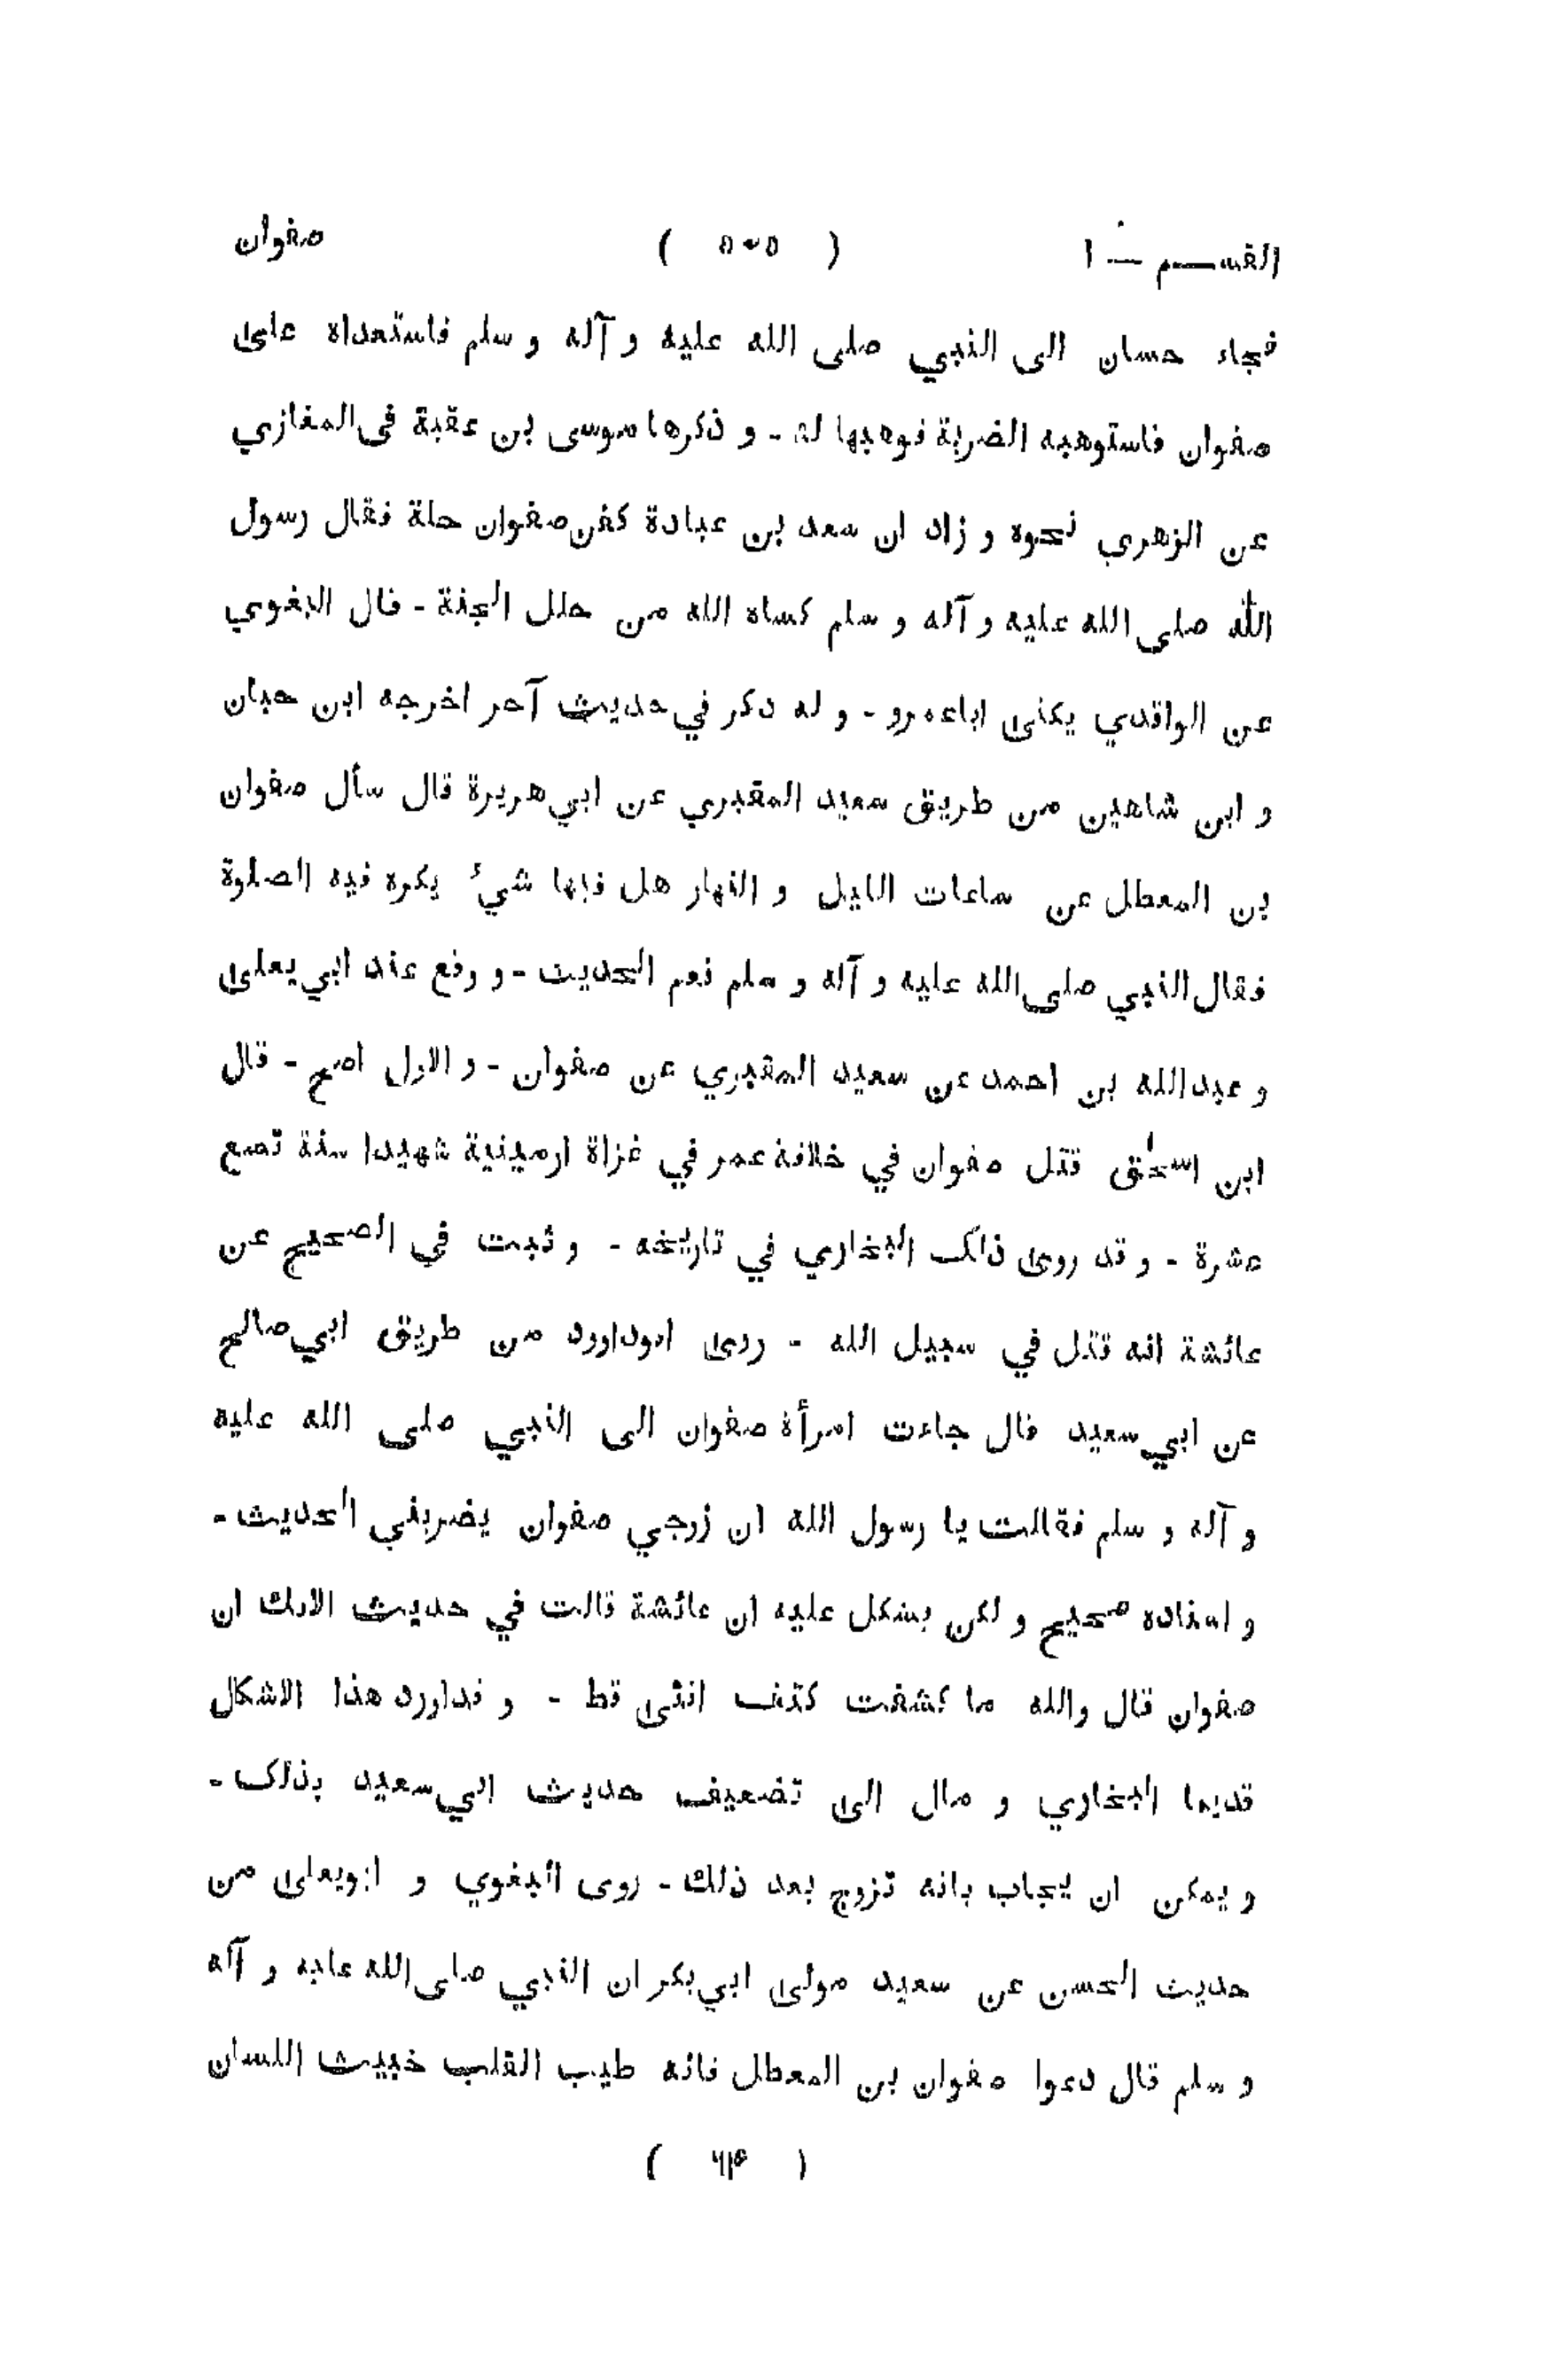 القسم — ١ ( ٥٠٥ ) صفوان
فجاء حسان الى النبي صلى الله عليه و آله و سلم فاستعداه على
صفوان فاستوهبه الضربة فوهبها له - و ذكرها موسى بن عقبة فى المغازي
عن الزهري نحوه و زاد ان سعد بن عبادة كفن صفوان حلة فقال رسول
الله صلى الله عليه و آله و سلم كساه الله من حلل الجنة - قال البغوي
عن الواقدي يكنى اباعمرو - و له ذكر في حديث آخر اخرجه ابن حبان
و ابن شاهين من طريق سعيد المقبري عن ابي هريرة قال سأل صفوان
بن المعطل عن ساعات الليل و النهار هل فيها شيء يكره فيه الصلوة
فقال النبي صلى الله عليه و آله و سلم نعم الحديث - و رفع عند ابي يعلى
و عبدالله بن احمد عن سعيد المقبري عن صفوان - و الاول اصح - قال
ابن اسحٰق قتل صفوان في خلافة عمر في غزاة ارمينية شهيدا سنة تسع
عشرة - و قد روى ذلك البخاري في تاريخه - و ثبت في الصحيح عن
عائشة انه قتل في سبيل الله - روى ابوداورد من طريق ابي صالح
عن ابي سعيد قال جاءت امرأة صفوان الى النبي صلى الله عليه
و آله و سلم فقالت يا رسول الله ان زوجي صفوان يضربني الحديث -
و اسناده صحيح و لكن يشكل عليه ان عائشة قالت في حديث الافك ان
صفوان قال والله ما كشفت كتف انثى قط - و قداورد هذا الاشكال
قديما البخاري و مال الى تضعيف حديث ابي سعيد بذلك -
و يمكن ان يجاب بانه تزوج بعد ذلك - روى البغوي و ابويعلى من
حديث الحسن عن سعيد مولى ابي بكر ان النبي صلى الله عليه و آله
و سلم قال دعوا صفوان بن المعطل فانه طيب القلب خبيث اللسان